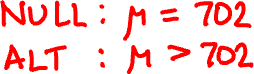 NULL: μ = 702
ALT : μ > 702